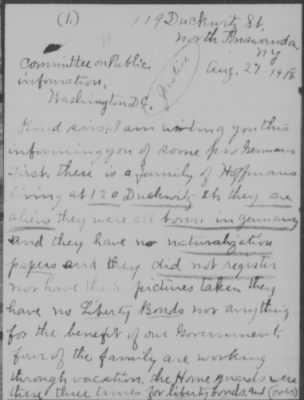 (1.)
119 Duckwitz St.
North Tonawanda
N Y
Aug. 27 1918
Committee on Public
information,
Washington D.C.
Justice
Kind sirs; I am writing you this
informing you of some pro Germans
first. there is a family of Hoffmans
living at 120 Duckwitz st. they are
aliens they were all born in germany
and they have no naturalization
papers and they did not register
nor have their pictures taken they
have no Liberty Bonds nor anything
for the benefit of our Government.
four of the family are working
through vacation, the Home guards were
there three times for liberty bonds, and (over)